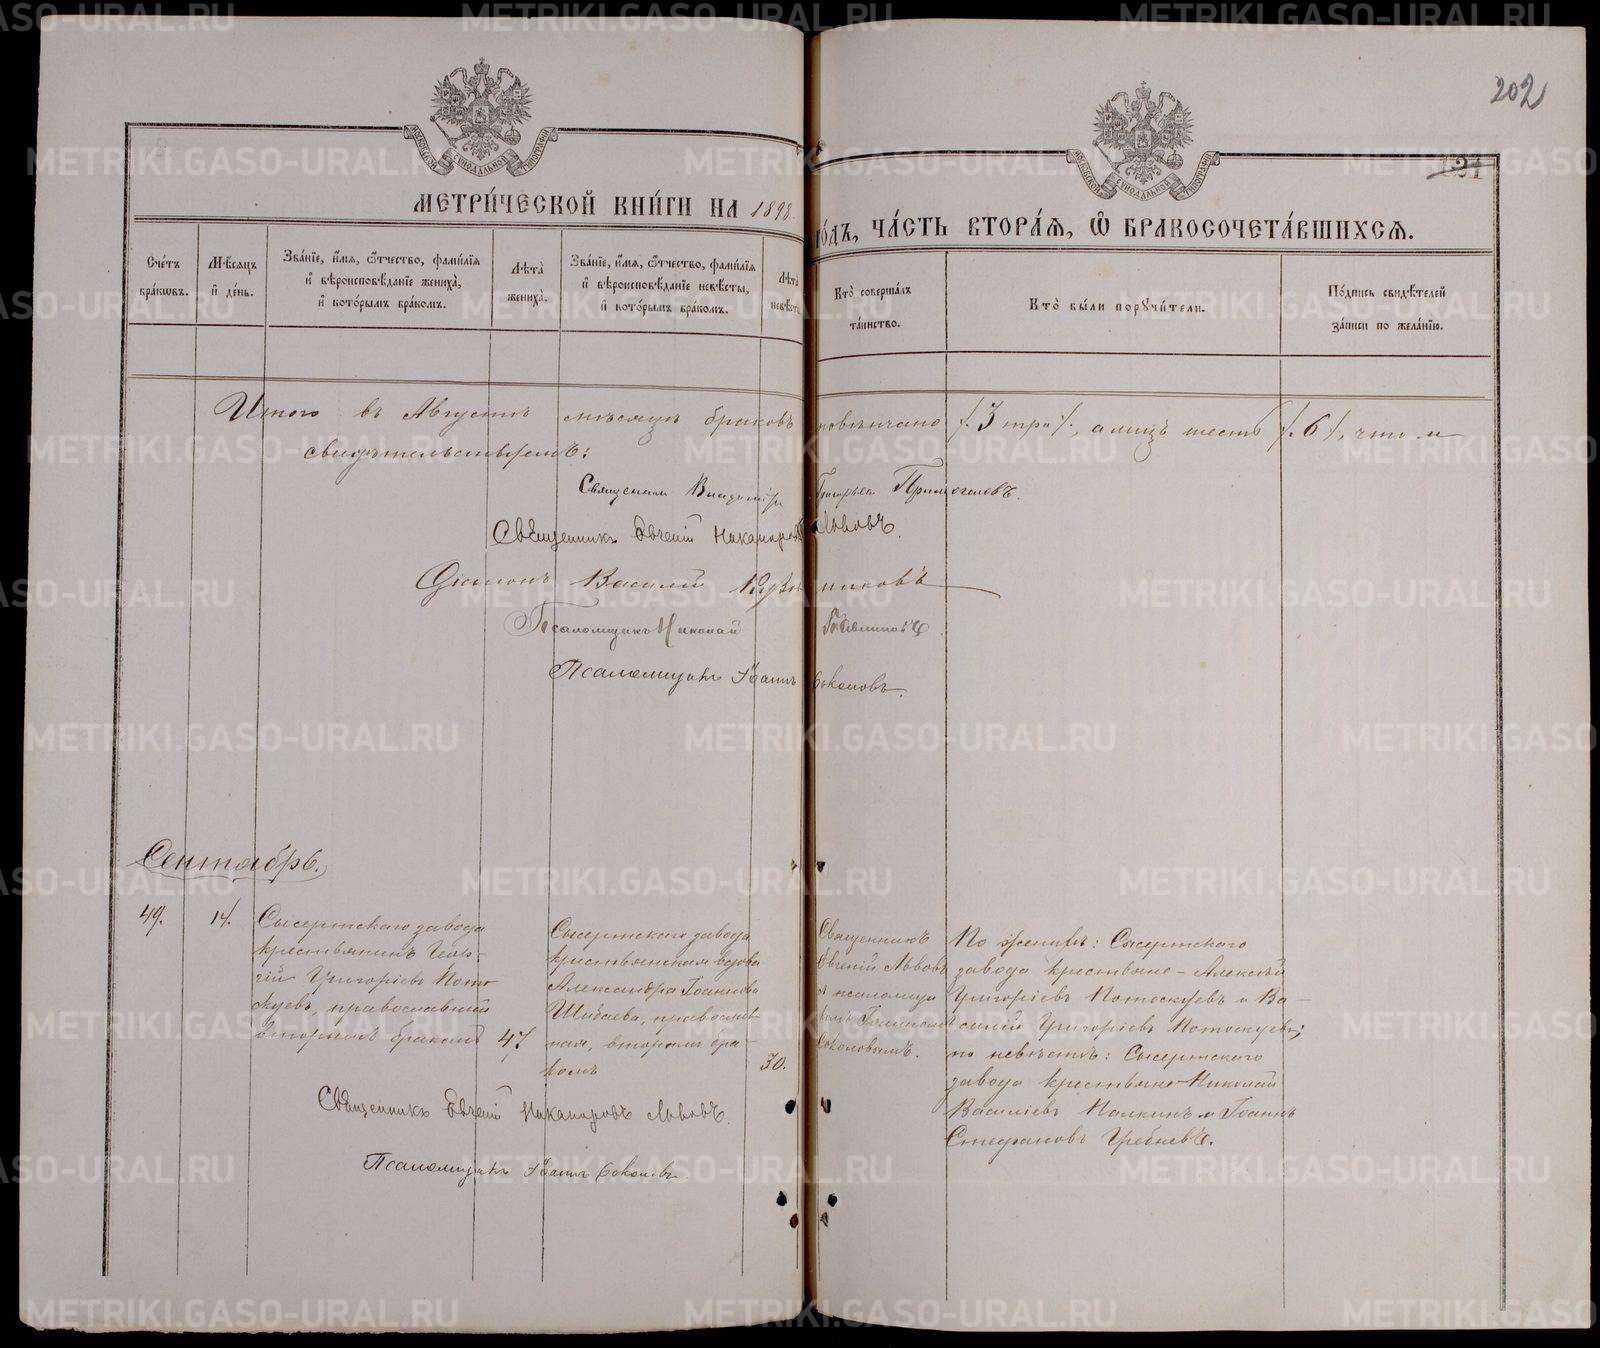 202
121
МОСКОВСКОЙ СѴНОДАЛЬНОЙ ТИПОГРАФІИ
МОСКОВСКОЙ СѴНОДАЛЬНОЙ ТИПОГРАФІИ
МЕТРИ́ЧЕСКОЙ КНИ́ГИ НА 1898
ГО́ДЪ, ЧА́СТЬ ВТОРА́Я, Ѡ БРАКОСОЧЕТА́ВШИХСЯ.
Сче́тъ бра́ковъ.
Мѣ́сяцъ и҆ де́нь.
Зва́нїе, и҆́мя, ѻ҆́тчество, фами́лїя и҆ вѣроисповѣ́данїе жениха̀, и҆ кото́рымъ бра́комъ.
Лѣ́та жениха̀.
Зва́нїе, и҆́мя, ѻ҆́тчество, фами́лїя и҆ вѣроисповѣ́данїе невѣ́сты, и҆ кото́рымъ бра́комъ.
Лѣ́та невѣ́сты
Кто̀ соверша́лъ та́инство.
Кто̀ бы́ли порꙋчи́тели.
По́дпись свидѣ́телей за́писи по жела́нїю.
Итого въ Августѣ мѣсяцѣ браковъ повѣнчано /. 3 три /., а лицъ шесть /. 6 /., что и
свидѣтельствуемъ:
Священникъ Владиміръ Григорьевъ
Священникъ Евгеній Никаноровъ Львовъ.
Діаконъ Василій
Псаломщикъ Николай
Псаломщикъ Іоаннъ Соколовъ.
Сентябрь.
49.
14.
Сысертскаго завода
крестьянинъ Геор-
гій Григоріевъ Пото-
скуевъ, православный
вторымъ бракомъ
47
Сысертскаго завода
крестьянская вдова
Александра Іоаннова
Шибаева, православ
ная, вторымъ бра-
комъ
30.
Священникъ
Евгеній Львовъ
и псаломщи
комъ Іоанномъ
Соколовымъ.
По женихѣ: Сысертскаго
завода крестьяне - Алексѣй
Григоріевъ Потоскуевъ и Ва-
силій Григоріевъ Потоскуевъ;
по невѣстѣ: Сысертскаго
завода крестьяне Николай
Василіевъ Палкинъ и Іоаннъ
Стефановъ Гребневъ.
Священникъ Евгеній Никаноровъ Львовъ.
Псаломщикъ Іоаннъ Соколовъ.
METRIKI.GASO-URAL.RU